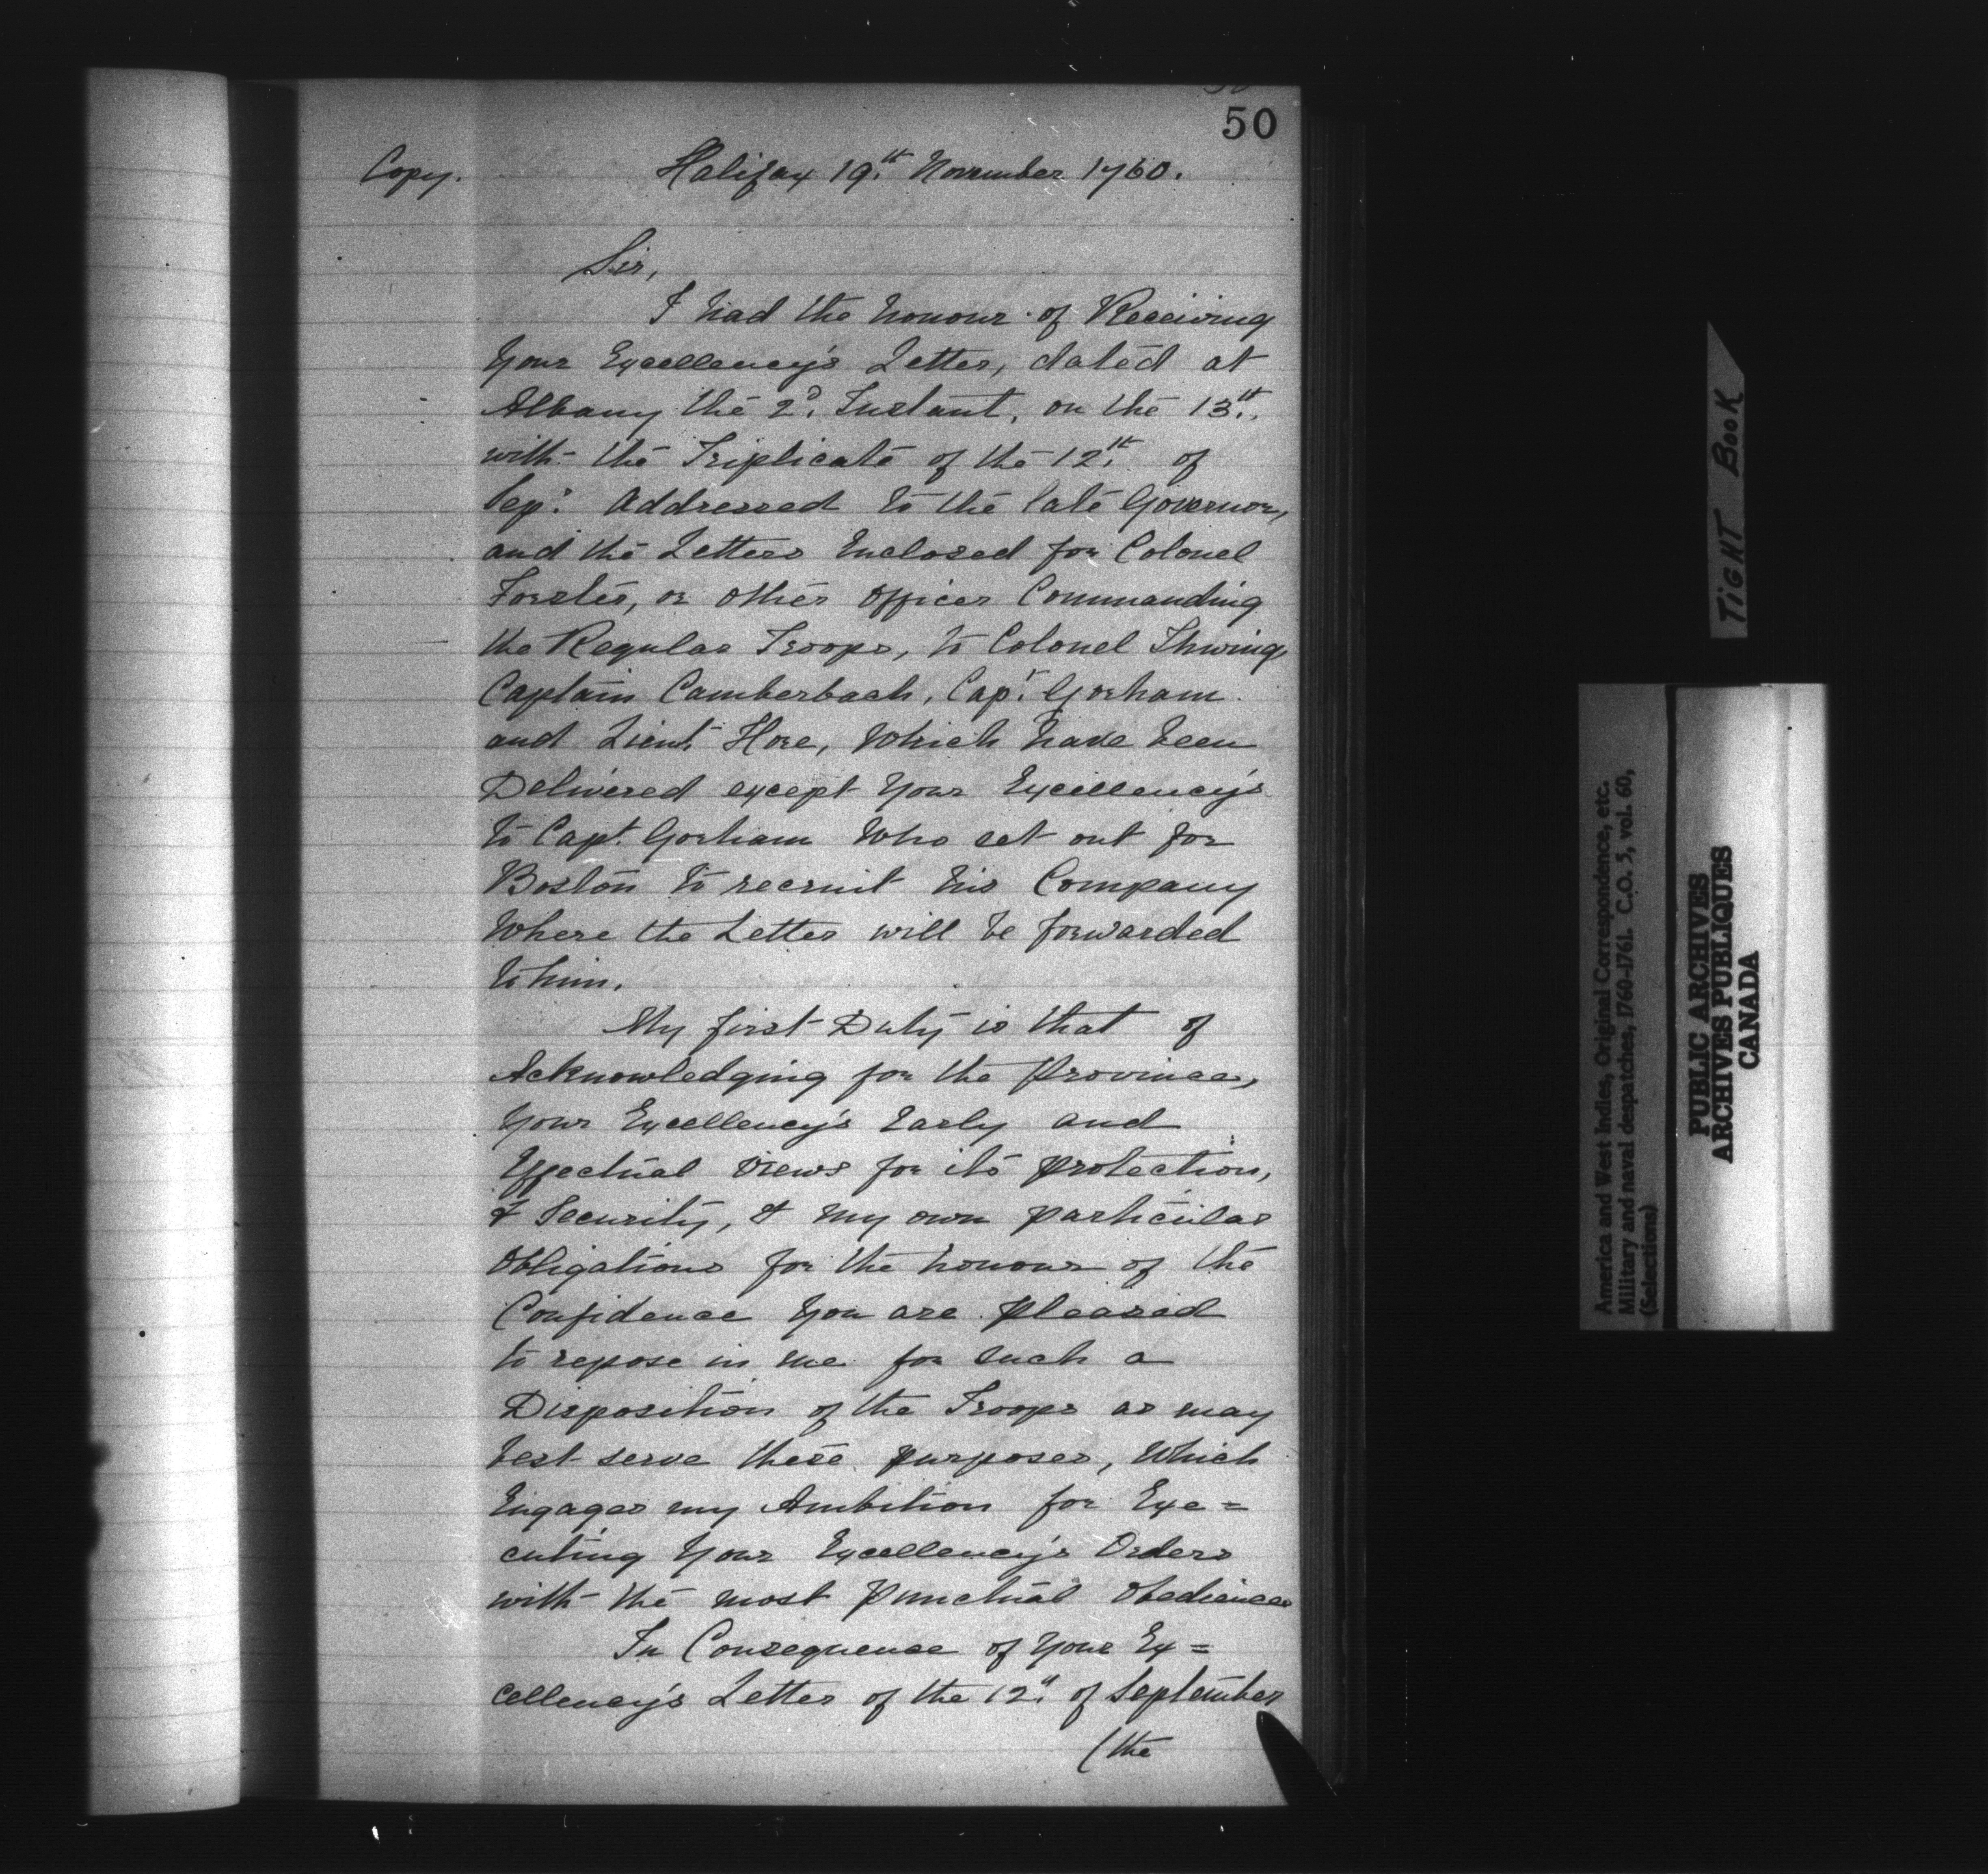 50
Copy. Halifax 19th November 1760.
Sir,
I had the honour of Receiving
Your Excellency's Letter, dated at
Albany the 2d. Instant, on the 13th.
with the Triplicate of the 12th of
Sep: Addressed to the late Governor,
and the Letters Enclosed for Colonel
Forster, or other officer Commanding
the Regular Troops, to Colonel Thwing,
Captain Camberbach, Capt. Gorham
and Lieut Hore, Which have been
Delivered except Your Excellency's
to Capt. Gorham Who set out for
Boston to recruit his Company
Where the Letter will be forwarded
to him.
My first Duty is that of
Acknowledging for the Province,
Your Excellency's Early and
Effectual views for its protection,
& Security, & my own particular
Obligations for the honour of the
Confidence You are pleased
to repose in me for such a
Disposition of the Troops as may
best serve these purposes, Which
Engages my Ambition for Exe=
cuting Your Excellency's Orders
with the most punctual Obedience
In Consequence of Your Ex=
cellency's Letter of the 12th of September
(the
TIGHT BOOK
America and West Indies, Original Correspondence, etc.
Military and naval despatches, 1760-1761. C.O. 5, vol. 60,
(Selections)
PUBLIC ARCHIVES
ARCHIVES PUBLIQUES
CANADA